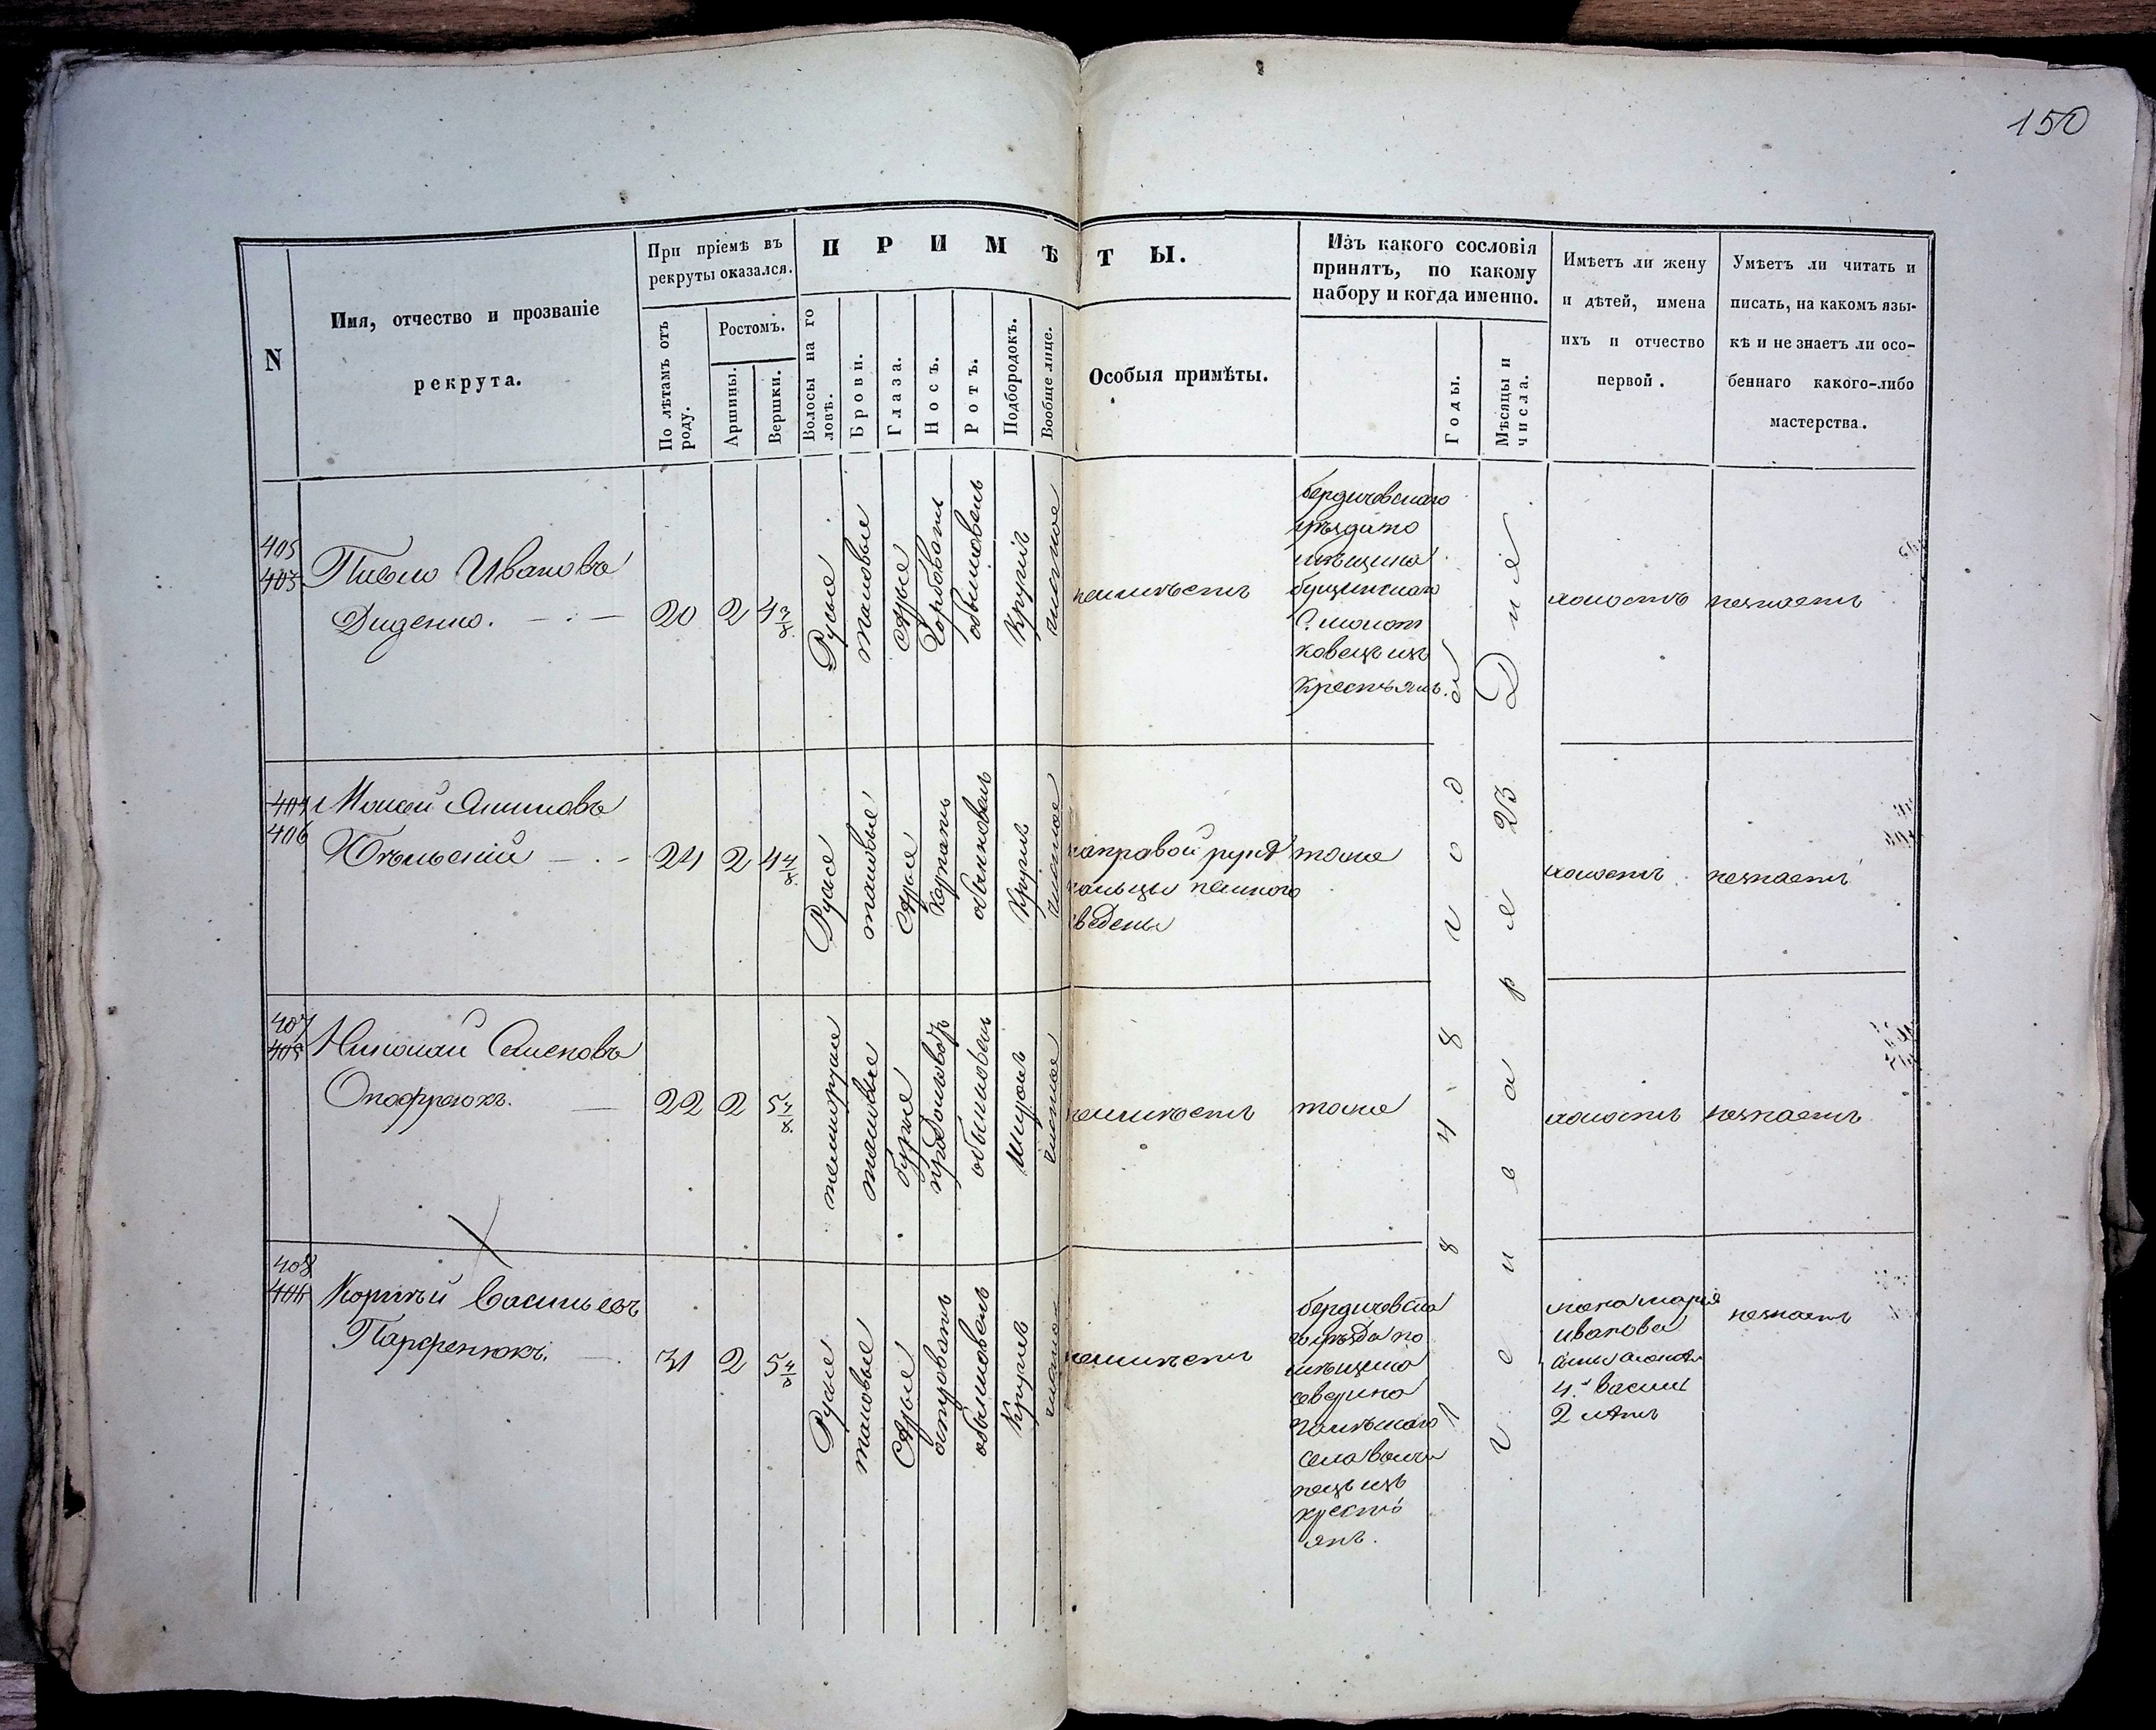 150
N
Имя, отчество и прозваніе
рекрута.
При пріемѣ въ
рекруты оказался.
По лѣтамъ отъ
роду.
Ростомъ.
Аршины.
Вершки.
П Р И М Ѣ Т Ы.
Волосы на го
ловѣ.
Брови.
Глаза.
Носъ.
Ротъ.
Подбородокъ.
Вообще лице.
Особыя примѣты.
Изъ какого сословія
принятъ, по какому
набору и когда именно.
Годы.
Мѣсяцы и
числа.
Имѣетъ ли жену
и дѣтей, имена
ихъ и отчество
первой.
Умѣетъ ли читать и
писать, на какомъ язы-
кѣ и не знаетъ ли осо-
беннаго какого-либо
мастерства.
405
403
Ивановъ
Диденко.
20
2
4 3/8
Русые
таковые
Сѣрые
обыкновенъ
Круглъ
чистое
неимѣетъ
бердичевскаго
уѣзда по
мѣщика
ковецъ изъ
крестьянъ.
холостъ
незнаетъ
404
406
Мойсей Якимовъ
24
2
4 4/8
Русые
таковые
Сѣрые
Курнатъ
обыкновенъ
Круглъ
чистое
направой руке
пальцы немного
сведены
тоже
холостъ
незнаетъ
407
405
Николай Семеновъ
Оноффреюкъ.
22
2
5 4/8
темнорусые
таковые
бурые
продолговатъ
обыкновенъ
чистое
неимѣетъ
тоже
холостъ
незнаетъ
408
406
Корнѣй Васильевъ
Парфенюкъ.
31
2
5 4/8
Русые
таковые
Сѣрые
обыкновенъ
Круглъ
чистое
неимѣетъ
бердичевска
го уѣзда по
мѣщика
северина
села
изъ
крестьянъ.
жена марія
иванова
4. васил
2 лѣтъ
незнаетъ
1848 года
Генваря 23 Дня